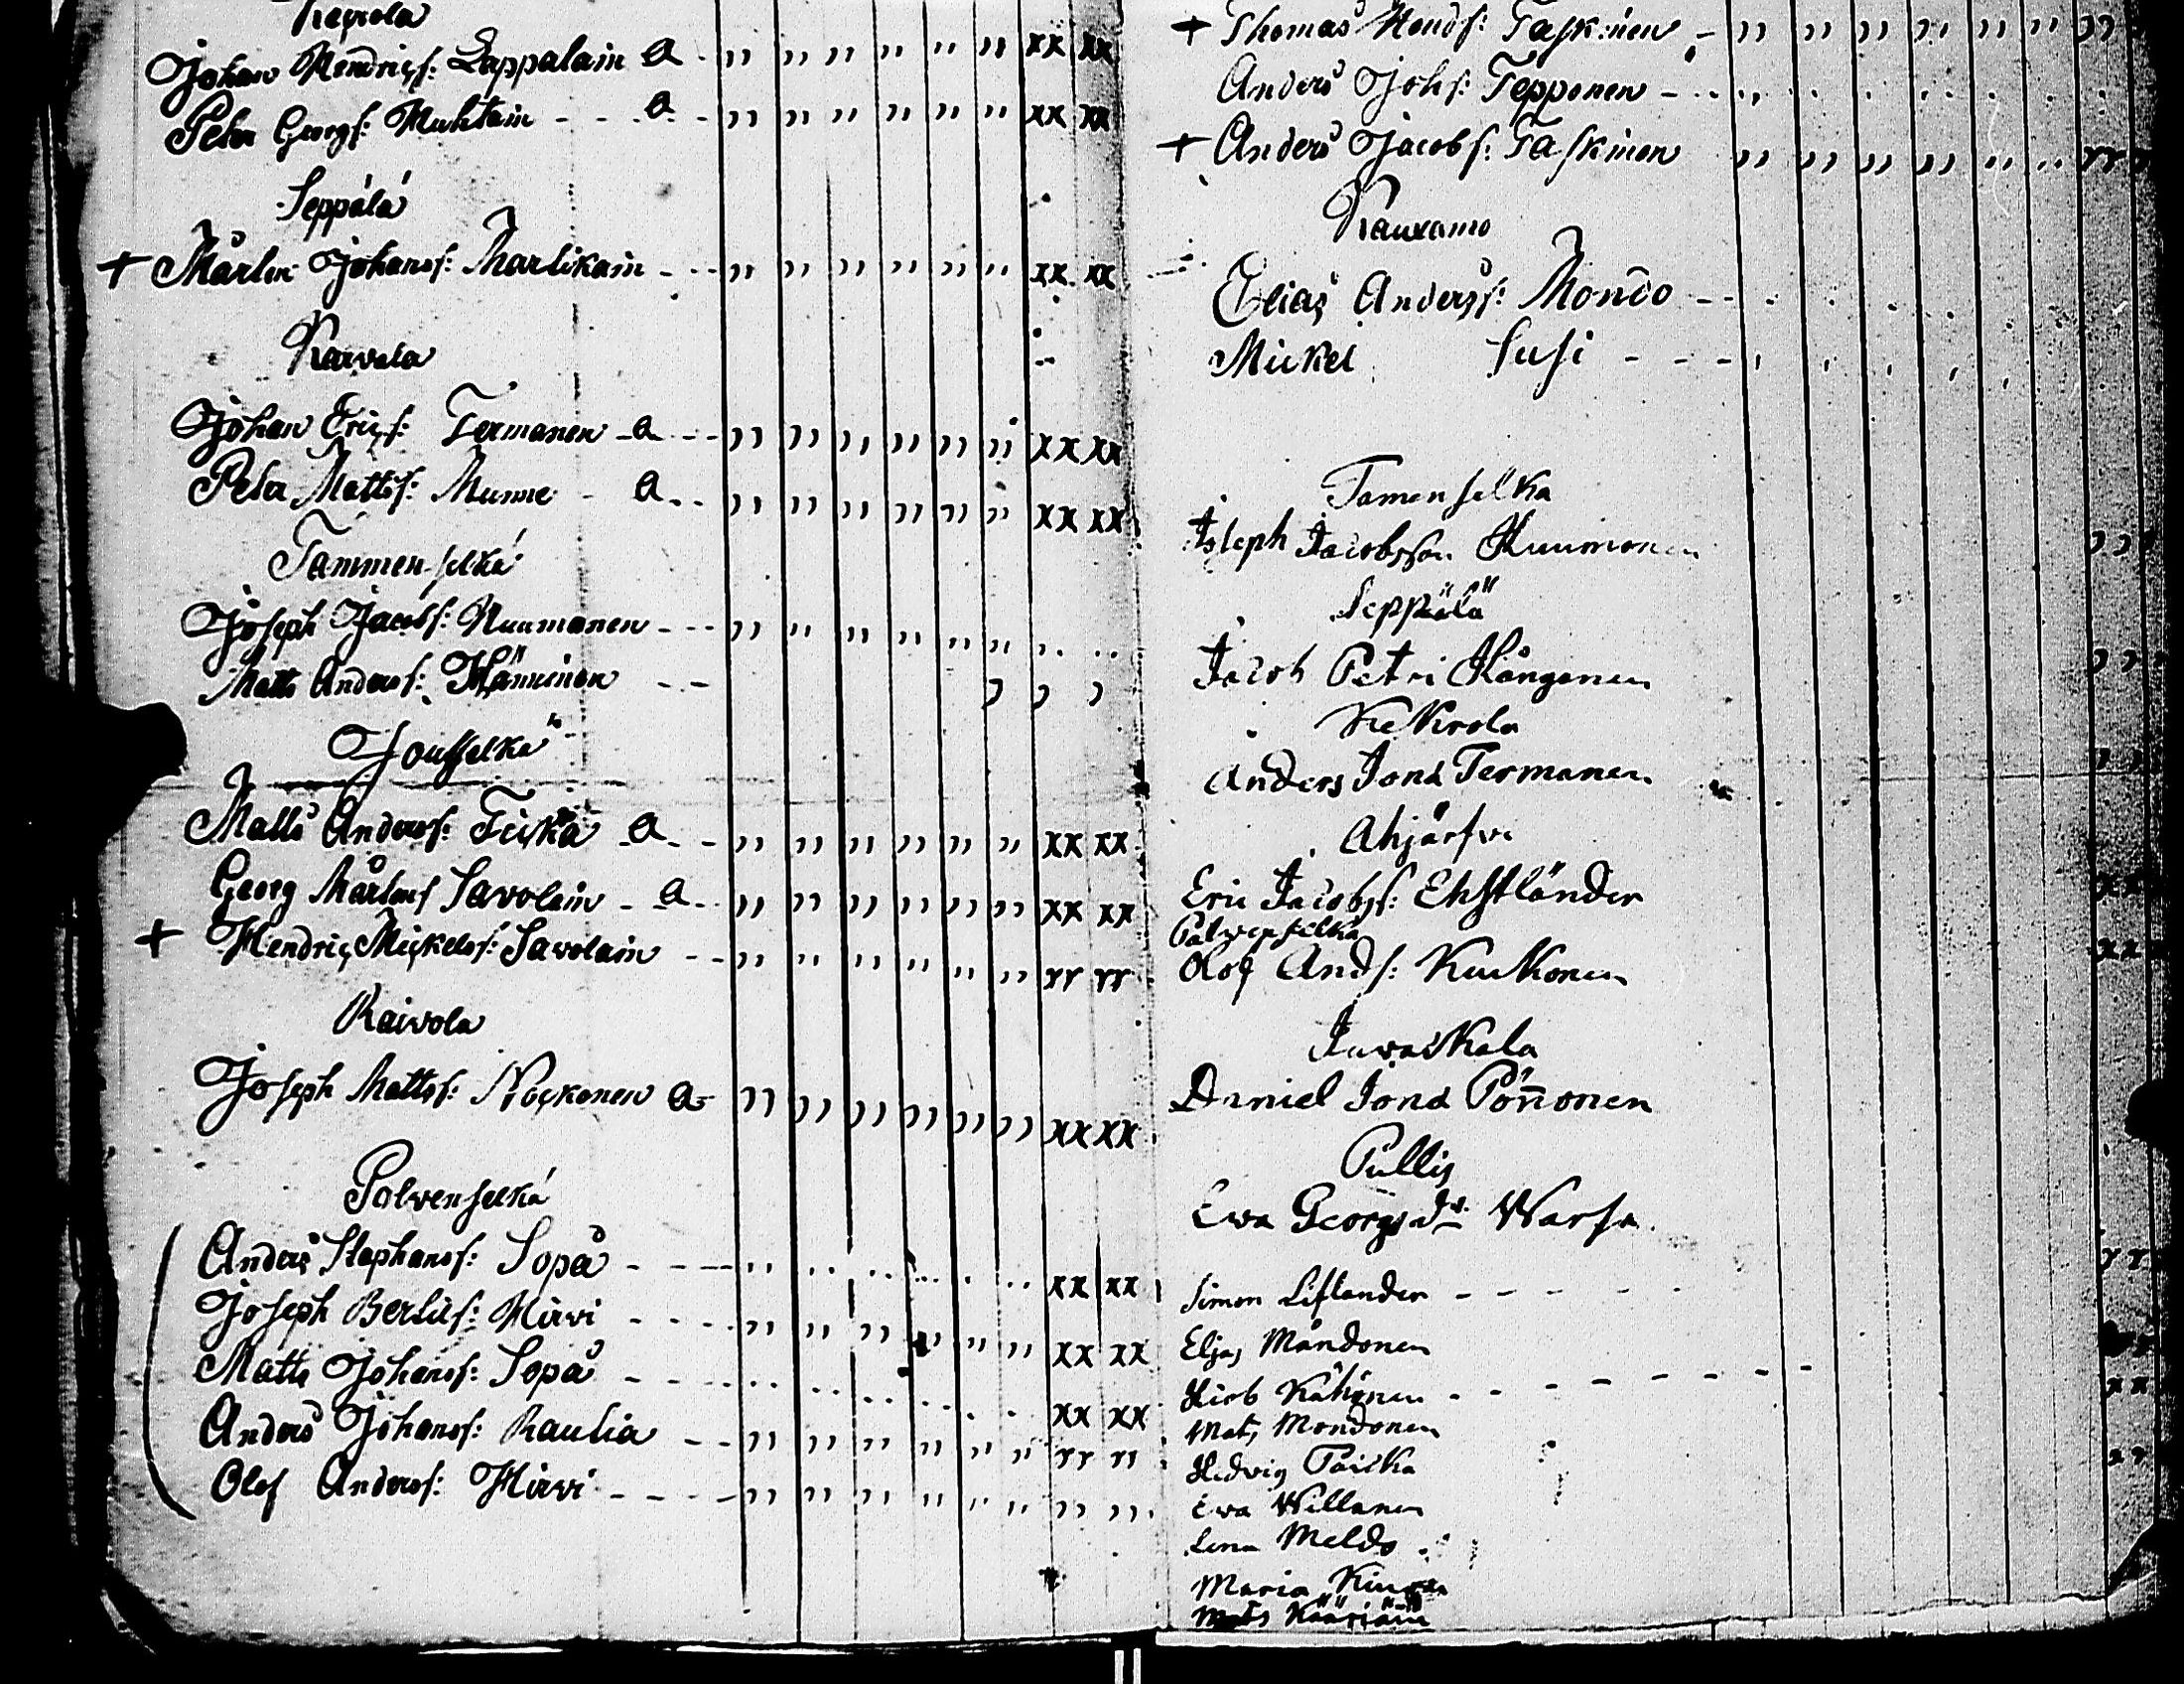 Johan Hendriçs: Lappalain a - " " " " " " xx xx
Petr Georgs: Muhtain - - - a - " " " " " " xx xx
Seppälä
+ Mårten Johanss: Martikain - - - " " " " " " xx xx
Raivola
Johan Eriçs: Termanen - a - - - " " " " " " xx xx
Petr Mattss: Munne - a - - " " " " " " xx xx
Tammenselkä
Joseph Jacobs: Nuumanen - - - " " " " " " . . . .
Matts Anderss: Hänninen - - , , ,
Jousselkä
Matts Anderss: Teiçkä - a - - " " " " " " xx xx
Georg Mårtens Savolain - a - - " " " " " " xx xx
+ Hendriç Miçkelss: Savolain - - " " " " " " xx xx
Raivola
Joseph Mattss: Noçkonen a - " " " " " " xx xx
Polvenselkä
Anders Stephanss: Sopa - - - " . . . . . . . . . . xx xx
Joseph Bertils: Hirvi - - - - " " " " " " xx xx
Matts Johanss: Sopa - - - - . . . . . . . . xx xx
Anders Johanss: Raulia - - " " " " " " rr rr
Olof Anderss: Hirvi - - - - " " " " " " " "
+ Thomas Hends: Taskinen - " " " " " " "
Anders Johs: Tepponen - - . . . . . . . .
+ Anders Jacobs: Taskinen " " " " " " rr
Rauxamo
Elias Anderss: Mondo - - . . . . . .
Mickel Susi - - - - , , , , , .
Tamenselka
Joseph Jacobsson Nuumonen "
Seppälä
Jacob Petri Kånganen "
Kekrola
Anders Jona Termanen "
Ahjärfvi
Eric Jacobss: Ehstländer xx
Palvenselkä
Olof Ands: Kuckonen xx
Juvaskala
Daniel Jona Pön̄onen
Pullis
Ewa Georgsdr Warsa
Simon Liflander - - - - -
Eljas Mändonen
Hiob Kähönen - - - - - - -
Mats Mondonen
Hedvig Paicka
Ewa Willanen
Lena Meldo
Maria
Mats Kääriäin